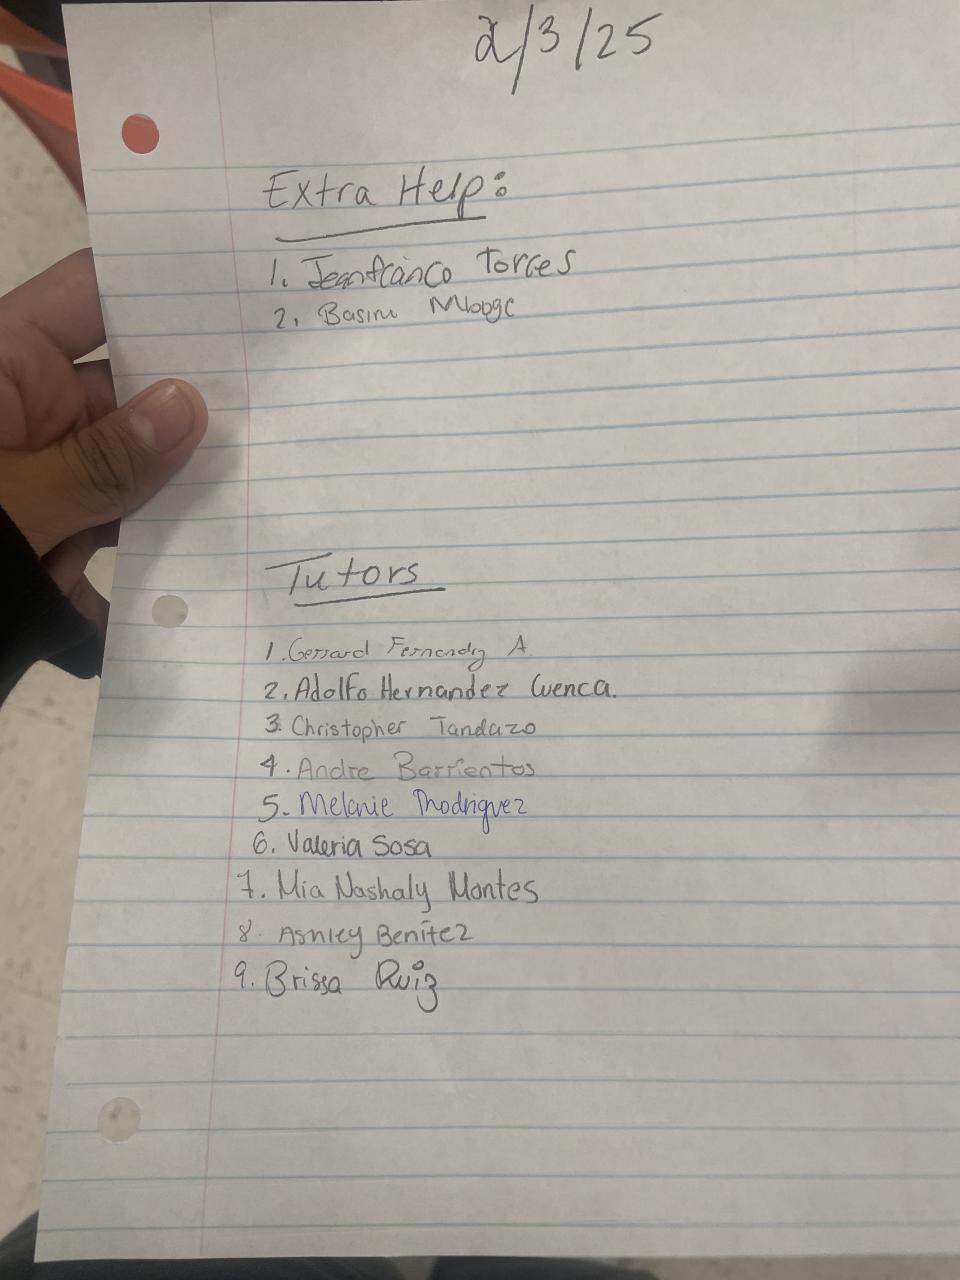 2/3/25
Extra Help:
1. Jeanfranco Torres
2.
Tutors
1. Gerrard A.
2. Adolfo Hernandez Cuenca.
3. Christopher Tandazo
4. Andre Barrientos
5. Melanie Rodriguez
6. Valeria Sosa
7. Mia Nashaly Montes
8. Ashley Benitez
9. Brissa Ruiz